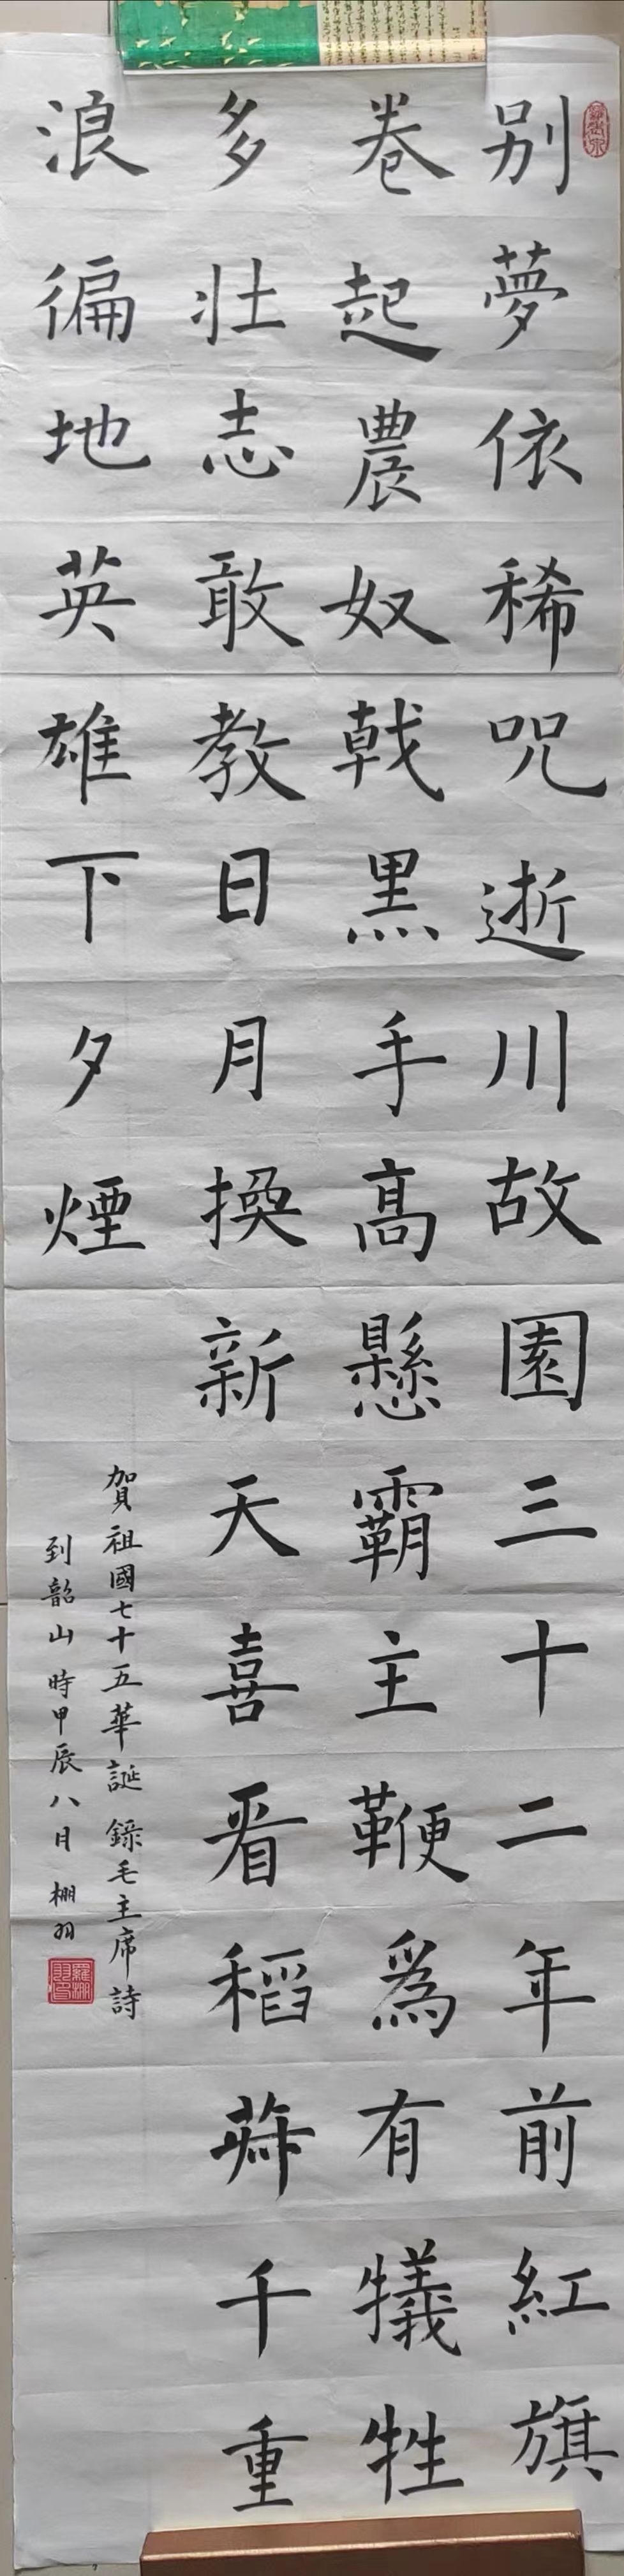 别夢依稀咒逝川故園三十二年前紅旗
卷起農奴戟黑手髙懸霸主鞭爲有犧牲
多壯志敢教日月換新天喜看稻菽千重
浪徧地英雄下夕煙
賀祖國七十五華誕 錄毛主席詩
到韶山 時甲辰八月 棚羽